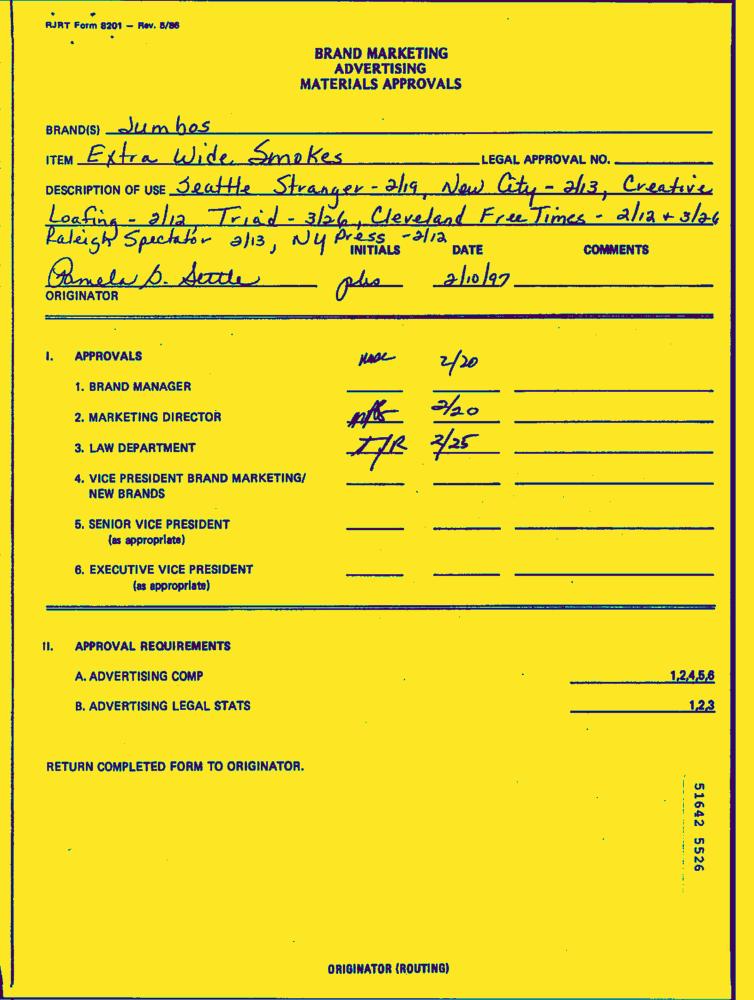 RJRT Form 8201 — Rev. 5/86
BRAND MARKETING
ADVERTISING
MATERIALS APPROVALS
BRAND(S) Jumbos
ITEM Extra Wide Smokes LEGAL APPROVAL NO.
DESCRIPTION OF USE Seattle Stranger - 2/19, New City - 2/13, Creative
Loafing - 2/12 Triad - 3/26, Cleveland Free Times - 2/12 + 3/26
Raleigh Spectator 2/13, NY Press - 2/12
INITIALS DATE COMMENTS
Pamela D. Settle pds 2/10/97
ORIGINATOR
I. APPROVALS 2/20
1. BRAND MANAGER
2. MARKETING DIRECTOR 2/20
3. LAW DEPARTMENT 2/25
4. VICE PRESIDENT BRAND MARKETING/
NEW BRANDS
5. SENIOR VICE PRESIDENT
(as appropriate)
6. EXECUTIVE VICE PRESIDENT
(as appropriate)
II. APPROVAL REQUIREMENTS
A. ADVERTISING COMP 1,2,4,5,6
B. ADVERTISING LEGAL STATS 1,2,3
RETURN COMPLETED FORM TO ORIGINATOR.
51642 5526
ORIGINATOR (ROUTING)